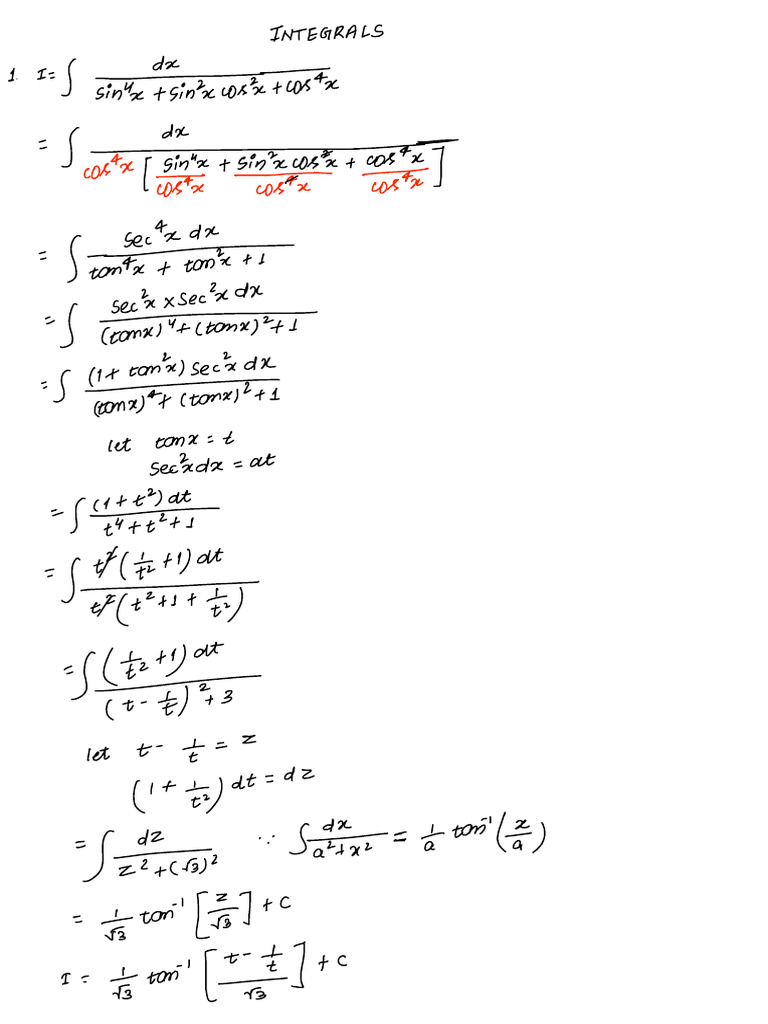 INTEGRALS
1. I = ∫ dx / (sin⁴x + sin²x cos²x + cos⁴x)
= ∫ dx / (cos⁴x [ sin⁴x/cos⁴x + sin²x cos²x/cos⁴x + cos⁴x/cos⁴x ])
= ∫ sec⁴x dx / (tan⁴x + tan²x + 1)
= ∫ sec²x × sec²x dx / ((tanx)⁴ + (tanx)² + 1)
= ∫ (1 + tan²x) sec²x dx / ((tanx)⁴ + (tanx)² + 1)
let tanx = t
sec²x dx = dt
= ∫ (1 + t²) dt / (t⁴ + t² + 1)
= ∫ t² (1/t² + 1) dt / (t² (t² + 1 + 1/t²))
= ∫ (1/t² + 1) dt / ((t - 1/t)² + 3)
let t - 1/t = z
(1 + 1/t²) dt = dz
= ∫ dz / (z² + (√3)²) ∵ ∫ dx / (a² + x²) = 1/a tan⁻¹ (x/a)
= 1/√3 tan⁻¹ [z/√3] + c
I = 1/√3 tan⁻¹ [(t - 1/t)/√3] + c